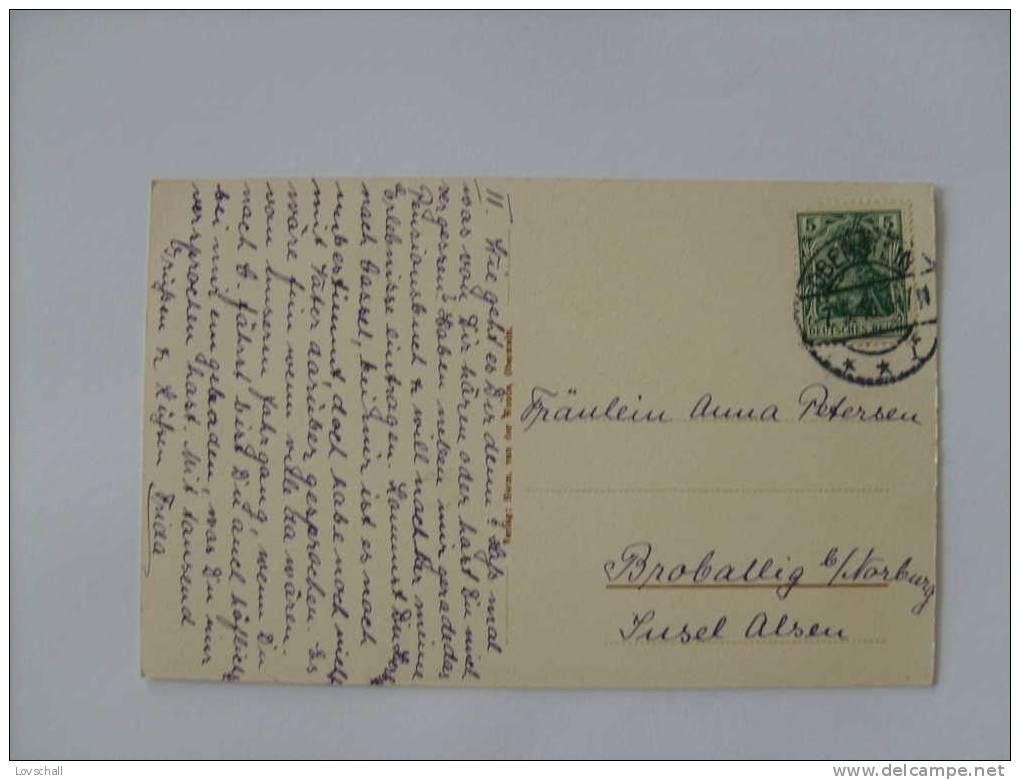 II. Wie geht es Dir denn? Laß mal
was von Dir hören oder hast Du mich
vergessen? Haben neben mir gerade das
Pensionsbuch & will nachher meine
Erlebnisse eintragen. Kommst Du
nach Cassel, bei mir ist es noch
unbestimmt, doch habe noch nicht
mit Vater darüber gesprochen. Es
wäre fein wenn wir da wären.
von unserem Jahrgang, wenn Du
nach C. fährst bist Du auch höflichst
bei mir eingeladen, was Du mir
versprochen hast. Mit tausend
Grüßen & Küssen Frida
5 5
DEUTSCHES REICH
Fräulein Anna Petersen
Broballig b/Norburg
Insel Alsen
Lovschall
www.delcampe.net